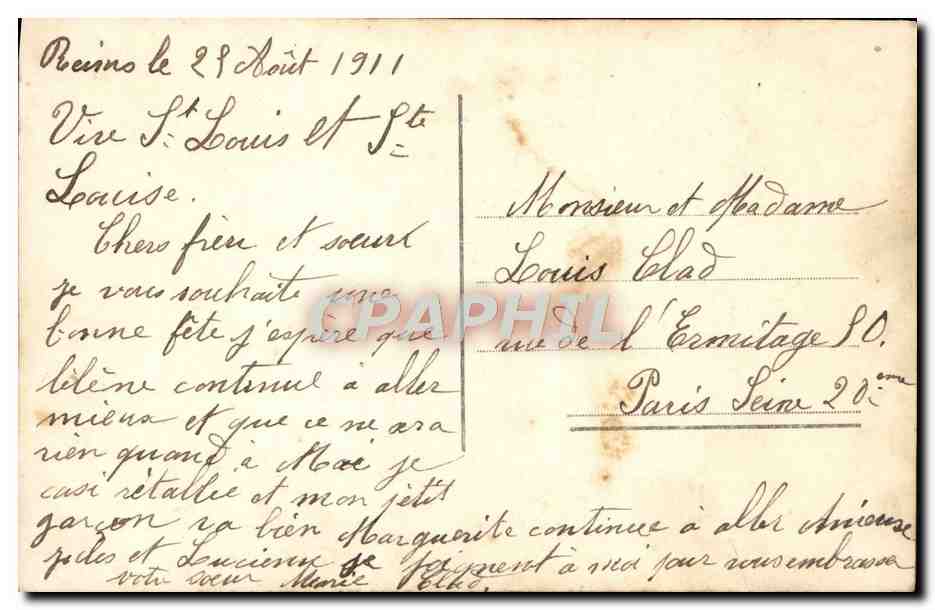 Reims le 25 Août 1911
Vive St Louis et Ste
Louise.
Chers frère et soeur
je vous souhaite une
bonne fête j'espère que
continue à aller
mieux et que ce ne sera
rien quand à Moi je
casi rétablie et mon petit
garçon va bien Marguerite continue à aller
et Lucienne se joignent à moi pour vous embrasser
votre soeur Marie Clad.
Monsieur et Madame
Louis Clad
rue de l'Ermitage 50.
Paris Seine 20ème
CPAPHIL